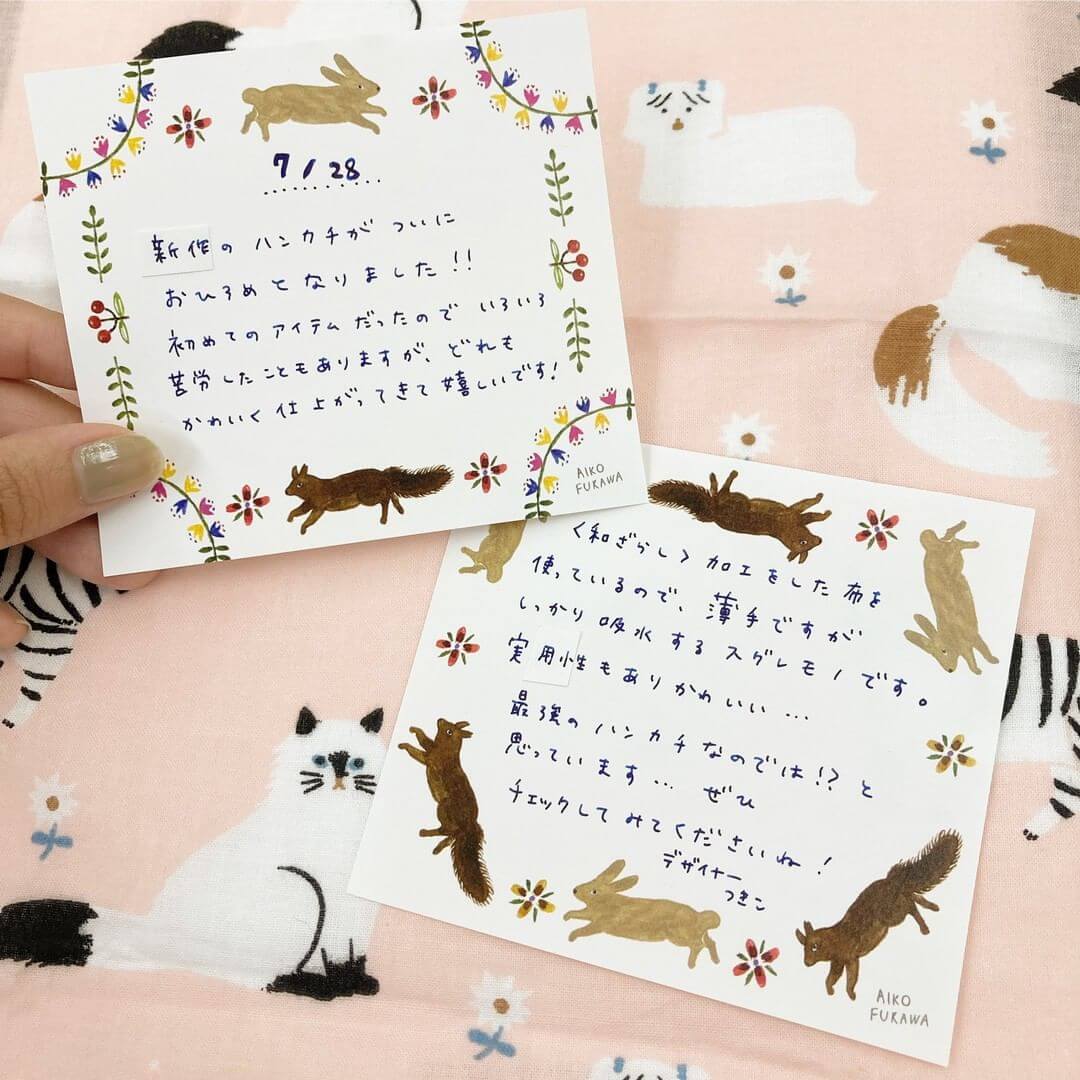 7/28
新作のハンカチがついに
おひろめとなりました!!
初めてのアイテムだったので いろいろ
苦労したこともありますが、どれも
かわいく仕上がってきて嬉しいです!
AIKO
FUKAWA
<和ざらし>加工をした布を
使っているので、薄手ですが
しっかり吸水するスグレモノです。
実用性もありかわいい…
最強のハンカチなのでは!?と
思っています… ぜひ
チェックしてみてくださいね!
デザイナー
つきこ
AIKO
FUKAWA